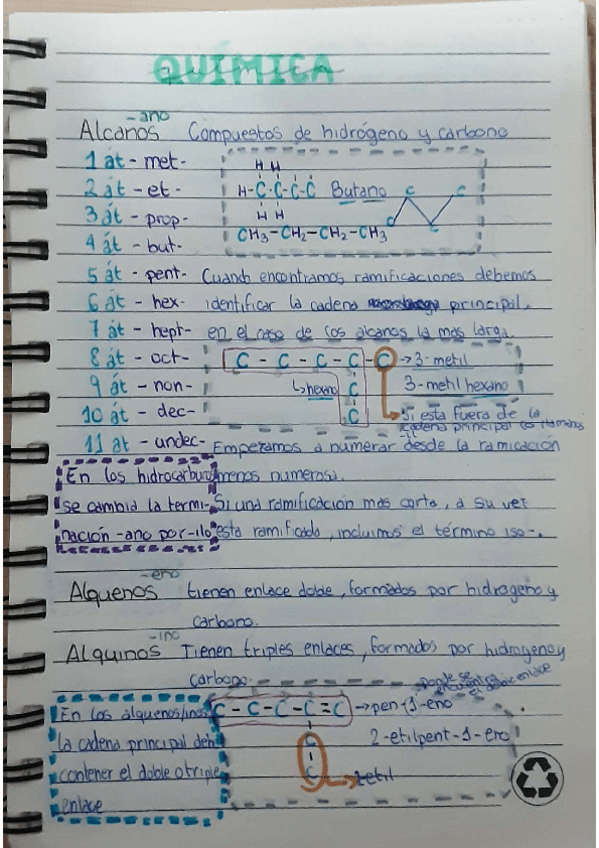 QUÍMICA
-ano
Alcanos Compuestos de hidrógeno y carbono
1 át - met-
2 át - et -
3 át - prop-
4 át - but-
5 át - pent-
6 át - hex-
7 át - hept-
8 át - oct-
9 át - non-
10 át - dec-
11 át - undec-
H H
H-C-C-C-C Butano
H H
CH3-CH2-CH2-CH3
C C
C C
Cuando encontramos ramificaciones debemos
identificar la cadena principal.
en el caso de los alcanos la más larga.
C - C - C - C - C → 3-metil
↳hexano C 3-metil hexano
C Si esta fuera de la
cadena principal los llamamos
-il
Empezamos a numerar desde la ramicación
menos numerosa.
Si una ramificación más corta, a su vez
esta ramificada, incluimos el término iso-.
En los hidrocarburos
se cambia la termi-
nación -ano por -ilo
-eno
Alquenos tienen enlace doble, formados por hidrogeno y
carbono.
-ino
Alquinos Tienen triples enlaces, formados por hidrogeno y
carbono.
donde se
encuentra
el doble enlace
En los alquenos/inos
la cadena principal deb
contener el doble o triple
enlace
C - C - C - C = C → pen-1-eno
C 2-etilpent-1-eno
C → 2-etil